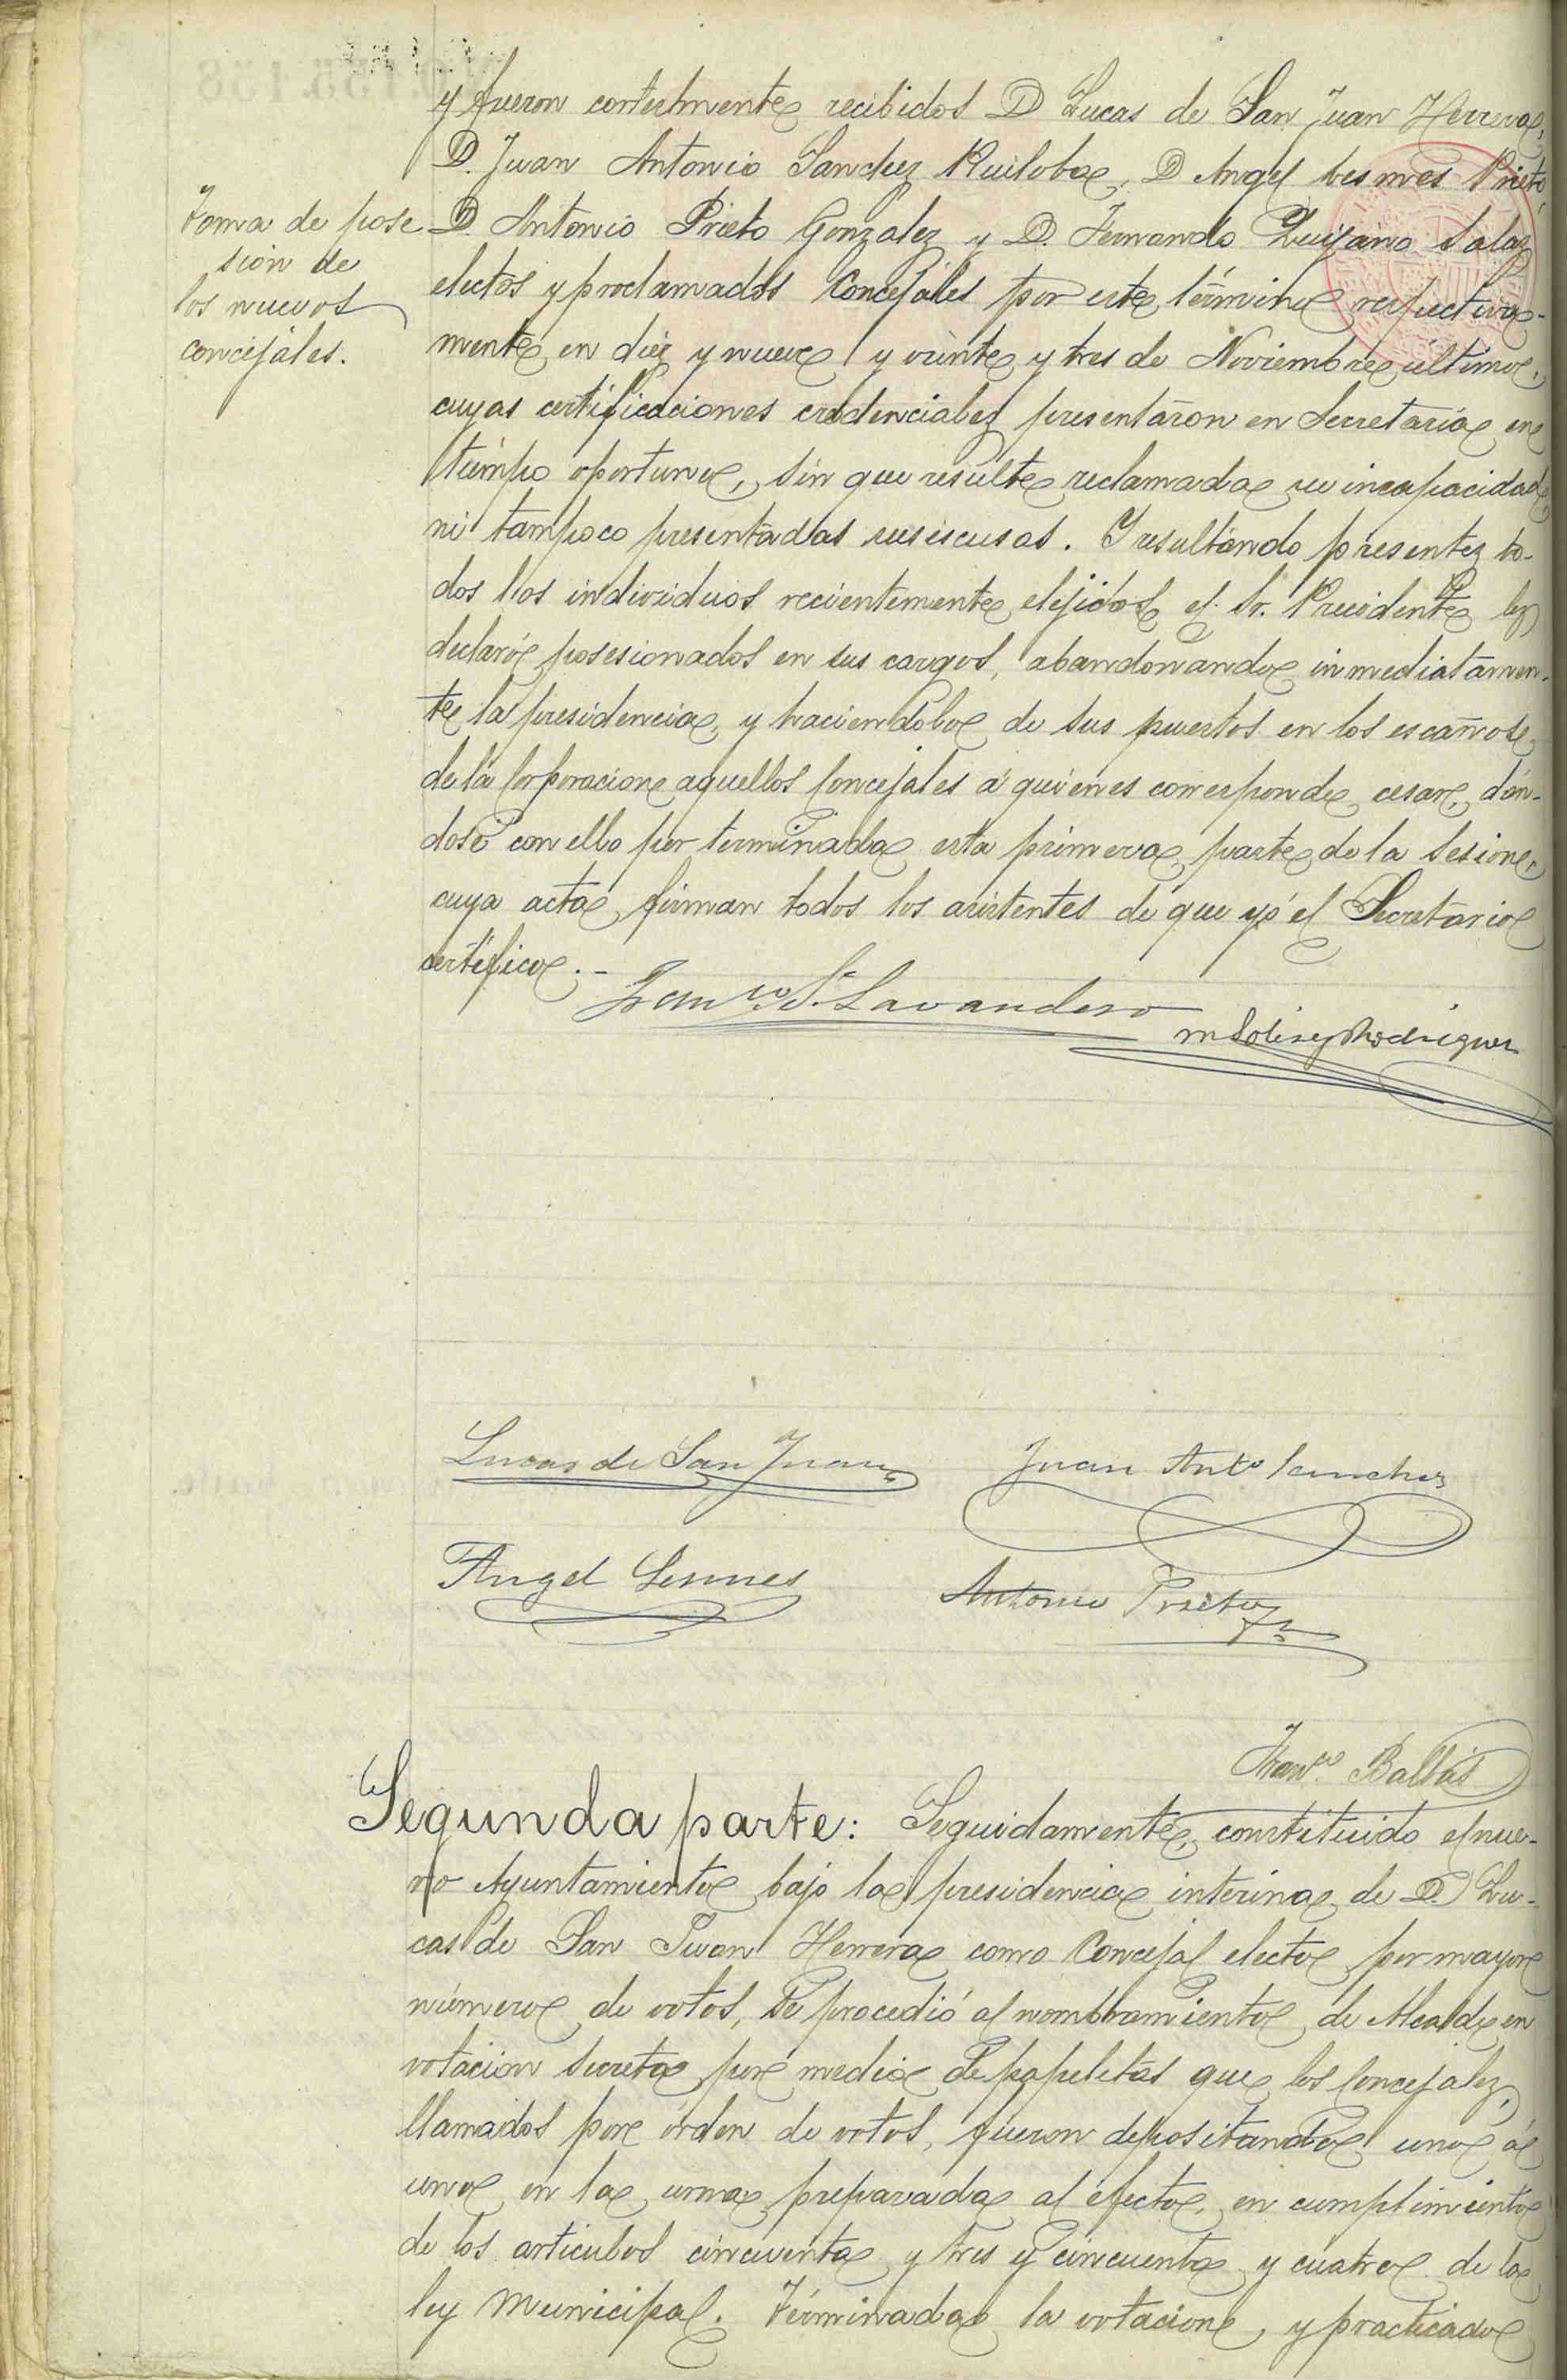 y fueron cortesmente recibidos D Lucas de San Juan Herrera,
D. Juan Antonio Sanchez Ruiloba, D Angel Lesmes Prieto
Toma de pose
sion de
los nuevos
concejales.
D. Antonio Prieto Gonzalez y D. Fernando Quijano Salas
electos y proclamados Concejales por este término respectiva-
mente en diez y nueve y veinte y tres de Noviembre último,
cuyas certificaciones credenciales presentaron en Secretaría en
tiempo oportuno, sin que resulte reclamada su incapacidad
ni tampoco presentadas sus escusas. Y resultando presentes to-
dos los individuos recientemente elejidos el Sr. Presidente les
declaró posesionados en sus cargos, abandonando inmediatamen-
te la presidencia, y haciendolo de sus puestos en los escaños
de la Corporacion aquellos Concejales á quienes corresponde cesar, dán-
dose con ello por terminada esta primera parte de la Sesion,
cuya acta firman todos los asistentes de que yo el Secretario
certifico.-
Franco S. Lavandero
M Solis y Rodriguez
Lucas de San Juan
Juan Anto Sanchez
Angel Lesmes
Antonio Prieto
Franco Ballás
Segunda parte: Seguidamente, constituido el nue-
vo Ayuntamiento bajo la presidencia interina de D. Lu-
cas de San Juan Herrera como Concejal electo por mayor
número de votos, se procedió al nombramiento de Alcalde en
votacion secreta por medio de papeletas que los Concejales,
llamados por órden de votos, fueron depositando uno á
uno en la urna preparada al efecto, en cumplimiento
de los articulos cincuenta y tres y cincuenta y cuatro de la
ley Municipal. Terminada la votacion, y practicado